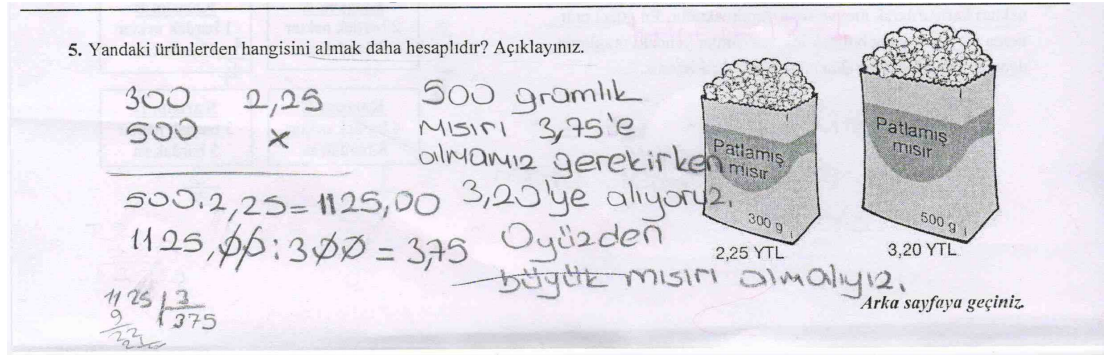 5. Yandaki ürünlerden hangisini almak daha hesaplıdır? Açıklayınız.
300 2,25
500 x
500.2,25=1125,00
1125,00:300=3,75
1125 3
9 375
22
500 gramlık
mısırı 3,75'e
almamız gerekirken
3,20'ye alıyoruz.
Oyüzden
büyük mısırı almalıyız.
Patlamış
mısır
300 g
2,25 YTL
Patlamış
mısır
500 g
3,20 YTL
Arka sayfaya geçiniz.